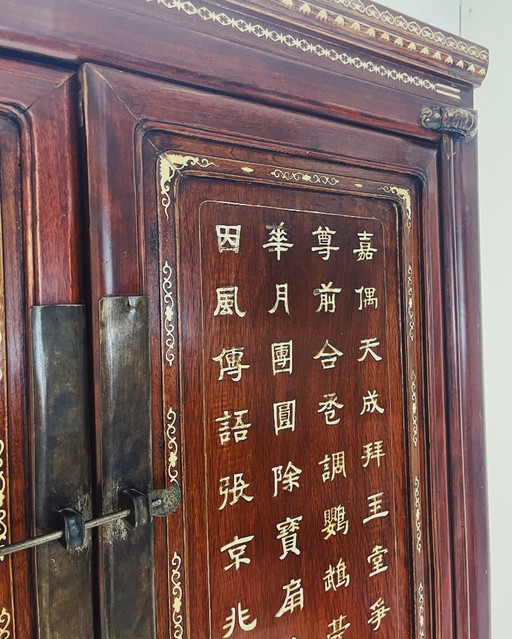 嘉偶天成拜王堂爭
尊前合卺調鸚鵡
華月團圓除寶扇
因風傳語張京兆